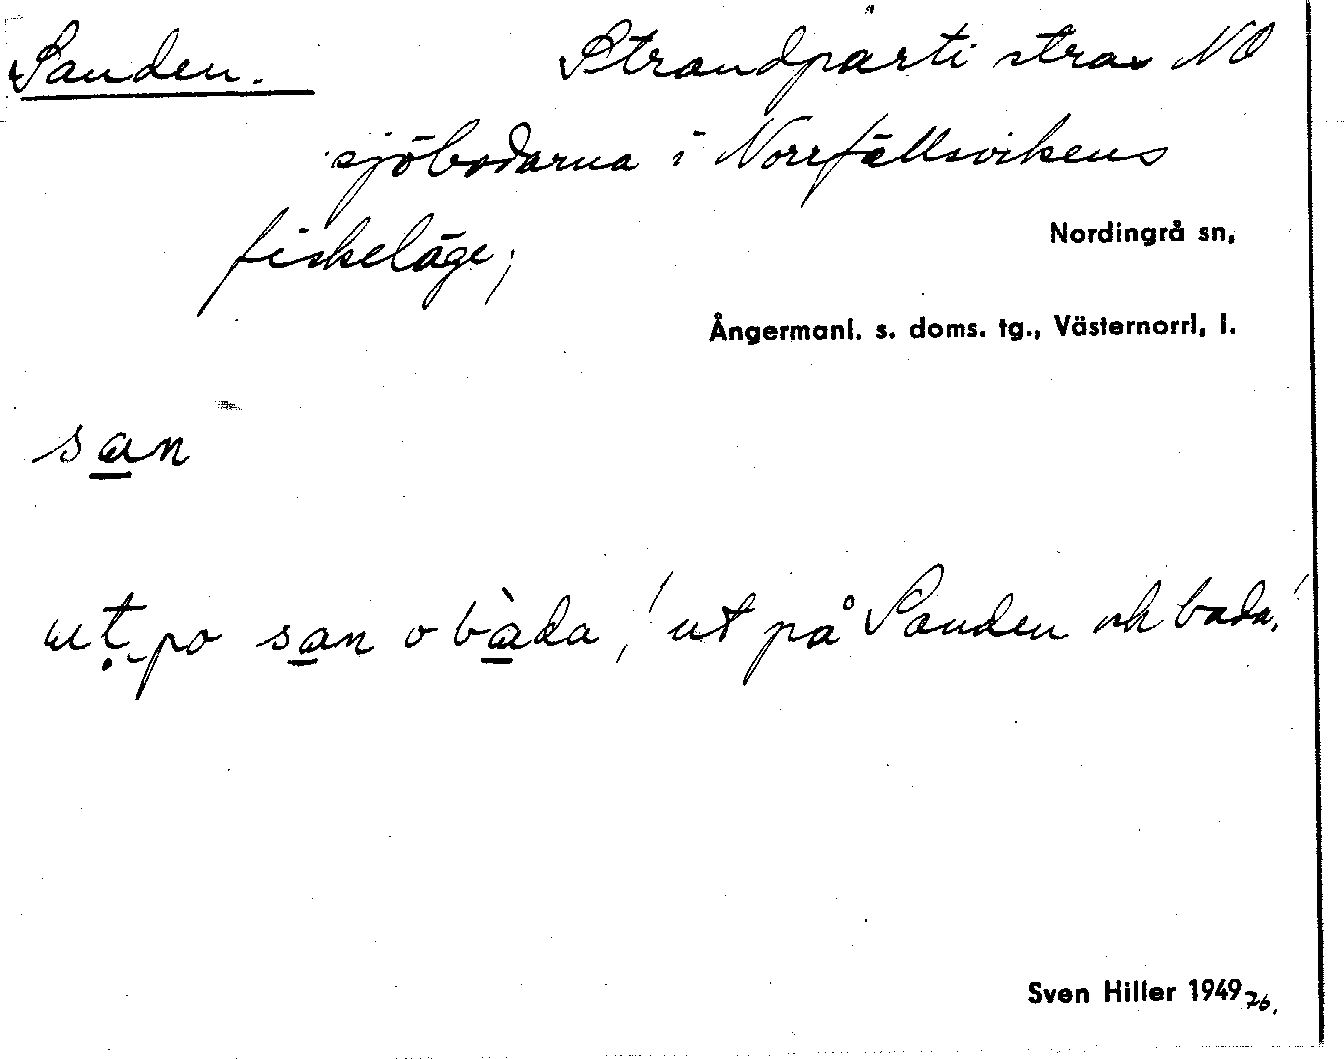 Sanden. Strandparti strax NO
sjöbodarna i Norrfällsvikens
fiskeläge;
Nordingrå sn,
Ångermanl. s. doms. tg., Västernorrl, l.
san
ut po san o bàda, 'ut på Sanden och bada.'
Sven Hiller 1949 76.